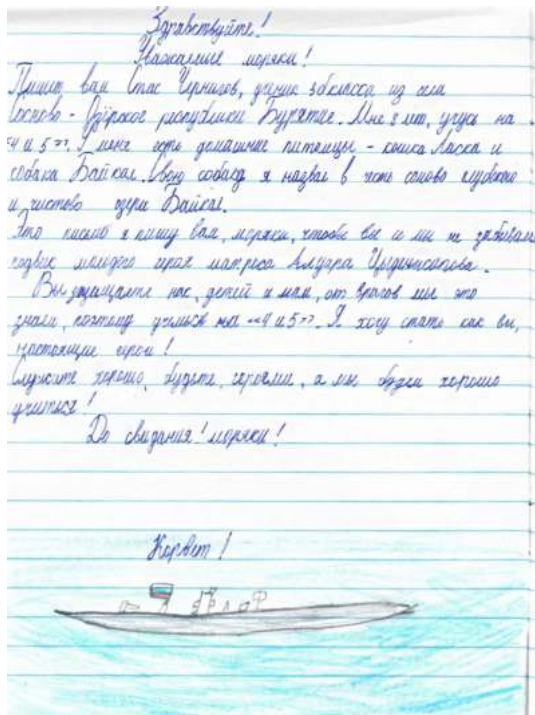 Здравствуйте!
Уважаемые моряки!
Пишет вам Стас Чернигов, ученик 3б класса из села
Сосново-Озёрское республики Бурятие. Мне 9 лет, учусь на
"4 и 5". У меня есть домашние питомцы - кошка Ласка и
собака Байкал. Свою собаку я назвал в честь самово глубокого
и чистово озера Байкал.
Это письмо я пишу вам, моряки, чтобы вы и мы не забывали
подвиг молодого героя матроса Алдара Цыденжапова.
Вы защищаете нас, детей и мам, от врагов мы это
знаем, поэтому учимся на "4 и 5". Я хочу стать как вы,
настоящие герои!
Служите хорошо, будьте героями, а мы будем хорошо
учиться!
До свидания! моряки!
Корвет!